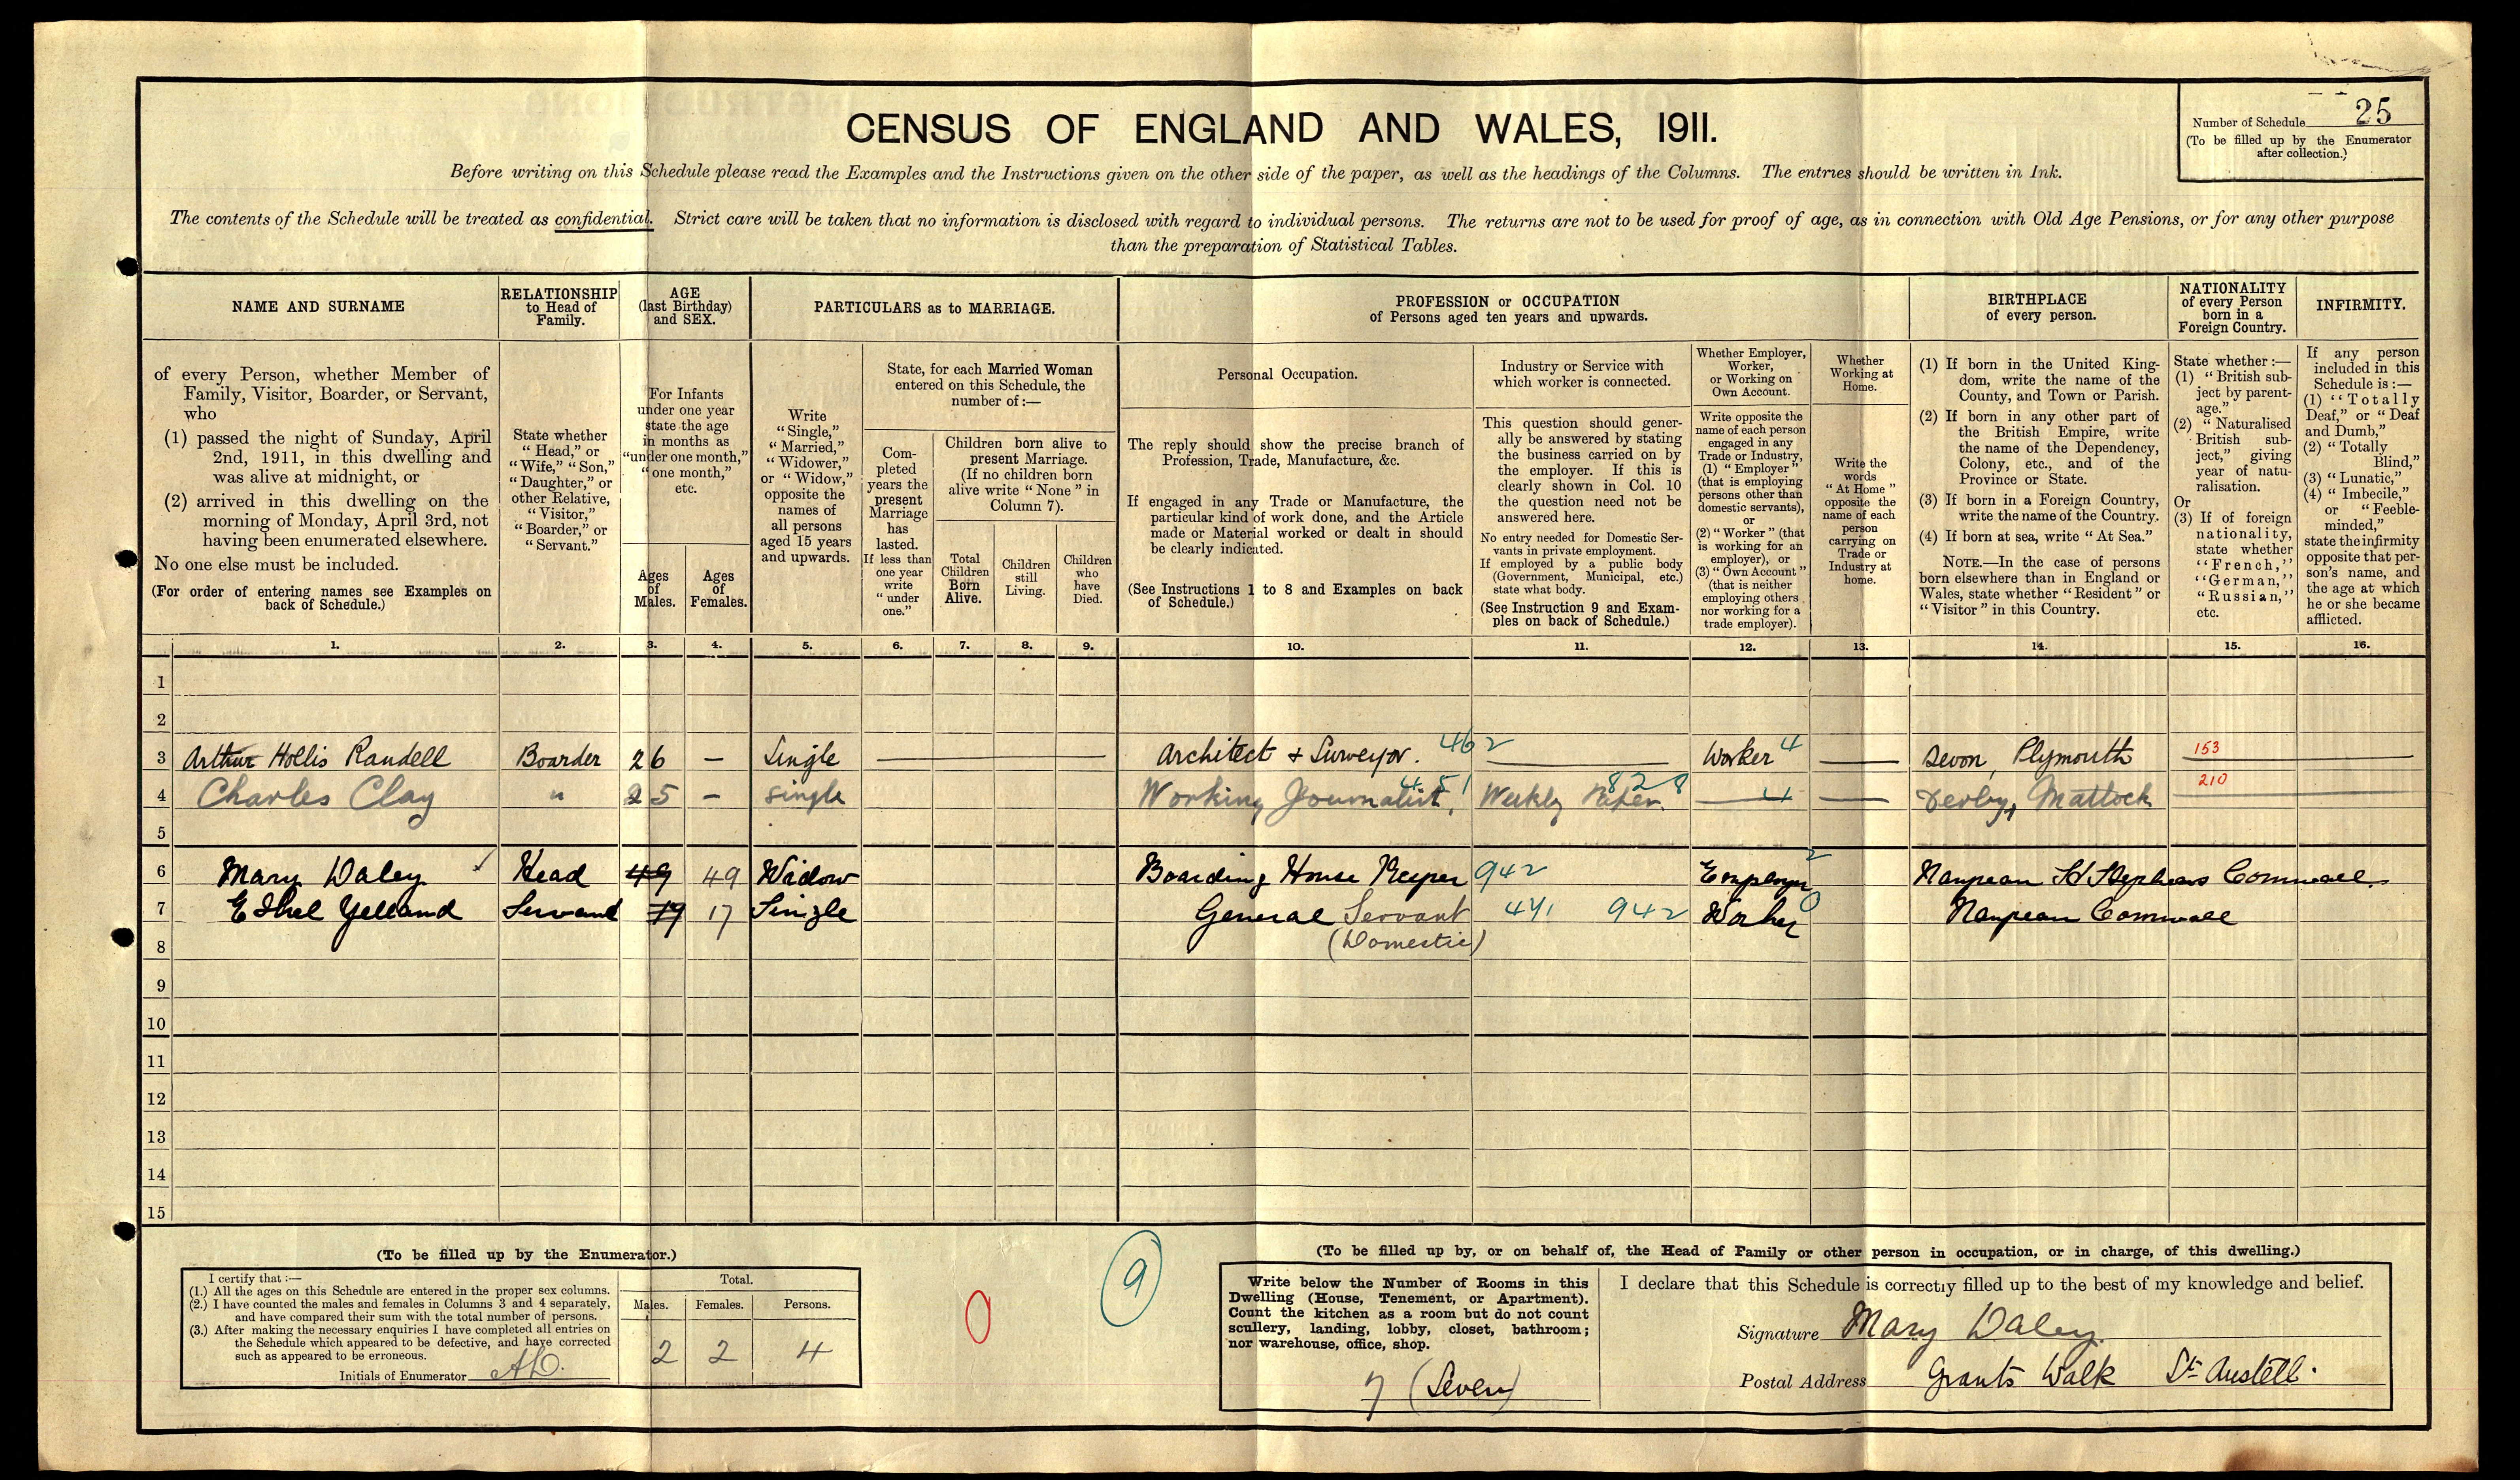 CENSUS OF ENGLAND AND WALES, 1911.
Number of Schedule 25
(To be filled up by the Enumerator
after collection.)
Before writing on this Schedule please read the Examples and the Instructions given on the other side of the paper, as well as the headings of the Columns. The entries should be written in Ink.
The contents of the Schedule will be treated as confidential. Strict care will be taken that no information is disclosed with regard to individual persons. The returns are not to be used for proof of age, as in connection with Old Age Pensions, or for any other purpose
than the preparation of Statistical Tables.
NAME AND SURNAME
of every Person, whether Member of
Family, Visitor, Boarder, or Servant,
who
(1) passed the night of Sunday, April
2nd, 1911, in this dwelling and
was alive at midnight, or
(2) arrived in this dwelling on the
morning of Monday, April 3rd, not
having been enumerated elsewhere.
No one else must be included.
(For order of entering names see Examples on
back of Schedule.)
RELATIONSHIP
to Head of
Family.
State whether
"Head," or
"Wife," "Son,"
"Daughter," or
other Relative,
"Visitor,"
"Boarder," or
"Servant."
AGE
(last Birthday)
and SEX.
For Infants
under one year
state the age
in months as
"under one month,"
"one month,"
etc.
Ages
of
Males.
Ages
of
Females.
PARTICULARS as to MARRIAGE.
Write
"Single,"
"Married,"
"Widower,"
or "Widow,"
opposite the
names of
all persons
aged 15 years
and upwards.
State, for each Married Woman
entered on this Schedule, the
number of:—
Com-
pleted
years the
present
Marriage
has
lasted.
If less than
one year
write
"under
one."
Children born alive to
present Marriage.
(If no children born
alive write "None" in
Column 7).
Total
Children
Born
Alive.
Children
still
Living.
Children
who
have
Died.
PROFESSION or OCCUPATION
of Persons aged ten years and upwards.
Personal Occupation.
The reply should show the precise branch of
Profession, Trade, Manufacture, &c.
If engaged in any Trade or Manufacture, the
particular kind of work done, and the Article
made or Material worked or dealt in should
be clearly indicated.
(See Instructions 1 to 8 and Examples on back
of Schedule.)
Industry or Service with
which worker is connected.
This question should gener-
ally be answered by stating
the business carried on by
the employer. If this is
clearly shown in Col. 10
the question need not be
answered here.
No entry needed for Domestic Ser-
vants in private employment.
If employed by a public body
(Government, Municipal, etc.)
state what body.
(See Instruction 9 and Exam-
ples on back of Schedule.)
Whether Employer,
Worker,
or Working on
Own Account.
Write opposite the
name of each person
engaged in any
Trade or Industry,
(1) "Employer"
(that is employing
persons other than
domestic servants),
or
(2) "Worker" (that
is working for an
employer), or
(3) "Own Account"
(that is neither
employing others
nor working for a
trade employer).
Whether
Working at
Home.
Write the
words
"At Home"
opposite the
name of each
person
carrying on
Trade or
Industry at
home.
BIRTHPLACE
of every person.
(1) If born in the United King-
dom, write the name of the
County, and Town or Parish.
(2) If born in any other part of
the British Empire, write
the name of the Dependency,
Colony, etc., and of the
Province or State.
(3) If born in a Foreign Country,
write the name of the Country.
(4) If born at sea, write "At Sea."
NOTE.—In the case of persons
born elsewhere than in England or
Wales, state whether "Resident" or
"Visitor" in this Country.
NATIONALITY
of every Person
born in a
Foreign Country.
State whether:—
(1) "British sub-
ject by parent-
age."
(2) "Naturalised
British sub-
ject," giving
year of natu-
ralisation.
Or
(3) If of foreign
nationality,
state whether
"French,"
"German,"
"Russian,"
etc.
INFIRMITY.
If any person
included in this
Schedule is:—
(1) "Totally
Deaf," or "Deaf
and Dumb,"
(2) "Totally
Blind,"
(3) "Lunatic,"
(4) "Imbecile,"
or "Feeble-
minded,"
state the infirmity
opposite that per-
son's name, and
the age at which
he or she became
afflicted.
1. 2. 3. 4. 5. 6. 7. 8. 9. 10. 11. 12. 13. 14. 15. 16.
1
2
3 Arthur Hollis Randell Boarder 26 — Single Architect & Surveyor. 462 Worker 4 — Devon, Plymouth 153
4 Charles Clay " 25 — Single Working Journalist, 451 Weekly Paper. 828 — 4 — Derby, Matlock 210
5
6 Mary Daley Head 49 49 Widow Boarding House Keeper 942 Employer 2 Nanpean St Stephens Cornwall.
7 Ethel Yelland Servant 19 17 Single General Servant 441 942 Worker 0 Nanpean Cornwall
8 (Domestic)
9
10
11
12
13
14
15
(To be filled up by the Enumerator.)
I certify that:—
(1.) All the ages on this Schedule are entered in the proper sex columns.
(2.) I have counted the males and females in Columns 3 and 4 separately,
and have compared their sum with the total number of persons.
(3.) After making the necessary enquiries I have completed all entries on
the Schedule which appeared to be defective, and have corrected
such as appeared to be erroneous.
Initials of Enumerator
Total.
Males. Females. Persons.
2 2 4
0
9
(To be filled up by, or on behalf of, the Head of Family or other person in occupation, or in charge, of this dwelling.)
Write below the Number of Rooms in this
Dwelling (House, Tenement, or Apartment).
Count the kitchen as a room but do not count
scullery, landing, lobby, closet, bathroom;
nor warehouse, office, shop.
7 (Seven)
I declare that this Schedule is correctly filled up to the best of my knowledge and belief.
Signature Mary Daley.
Postal Address Grants Walk St Austell.